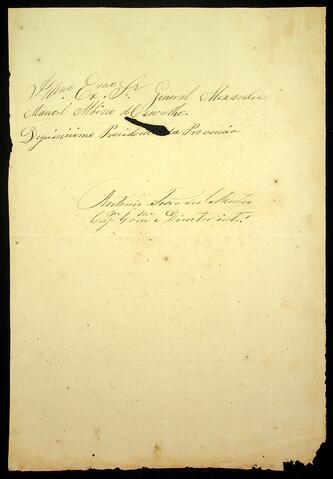 Illmo. Exmo. Sr. General Alexandre
Manoel Albino de Carvalho
Digníssimo Presidente da Provincia
Antonio dos Santos
Capm. Comme. e Director int.